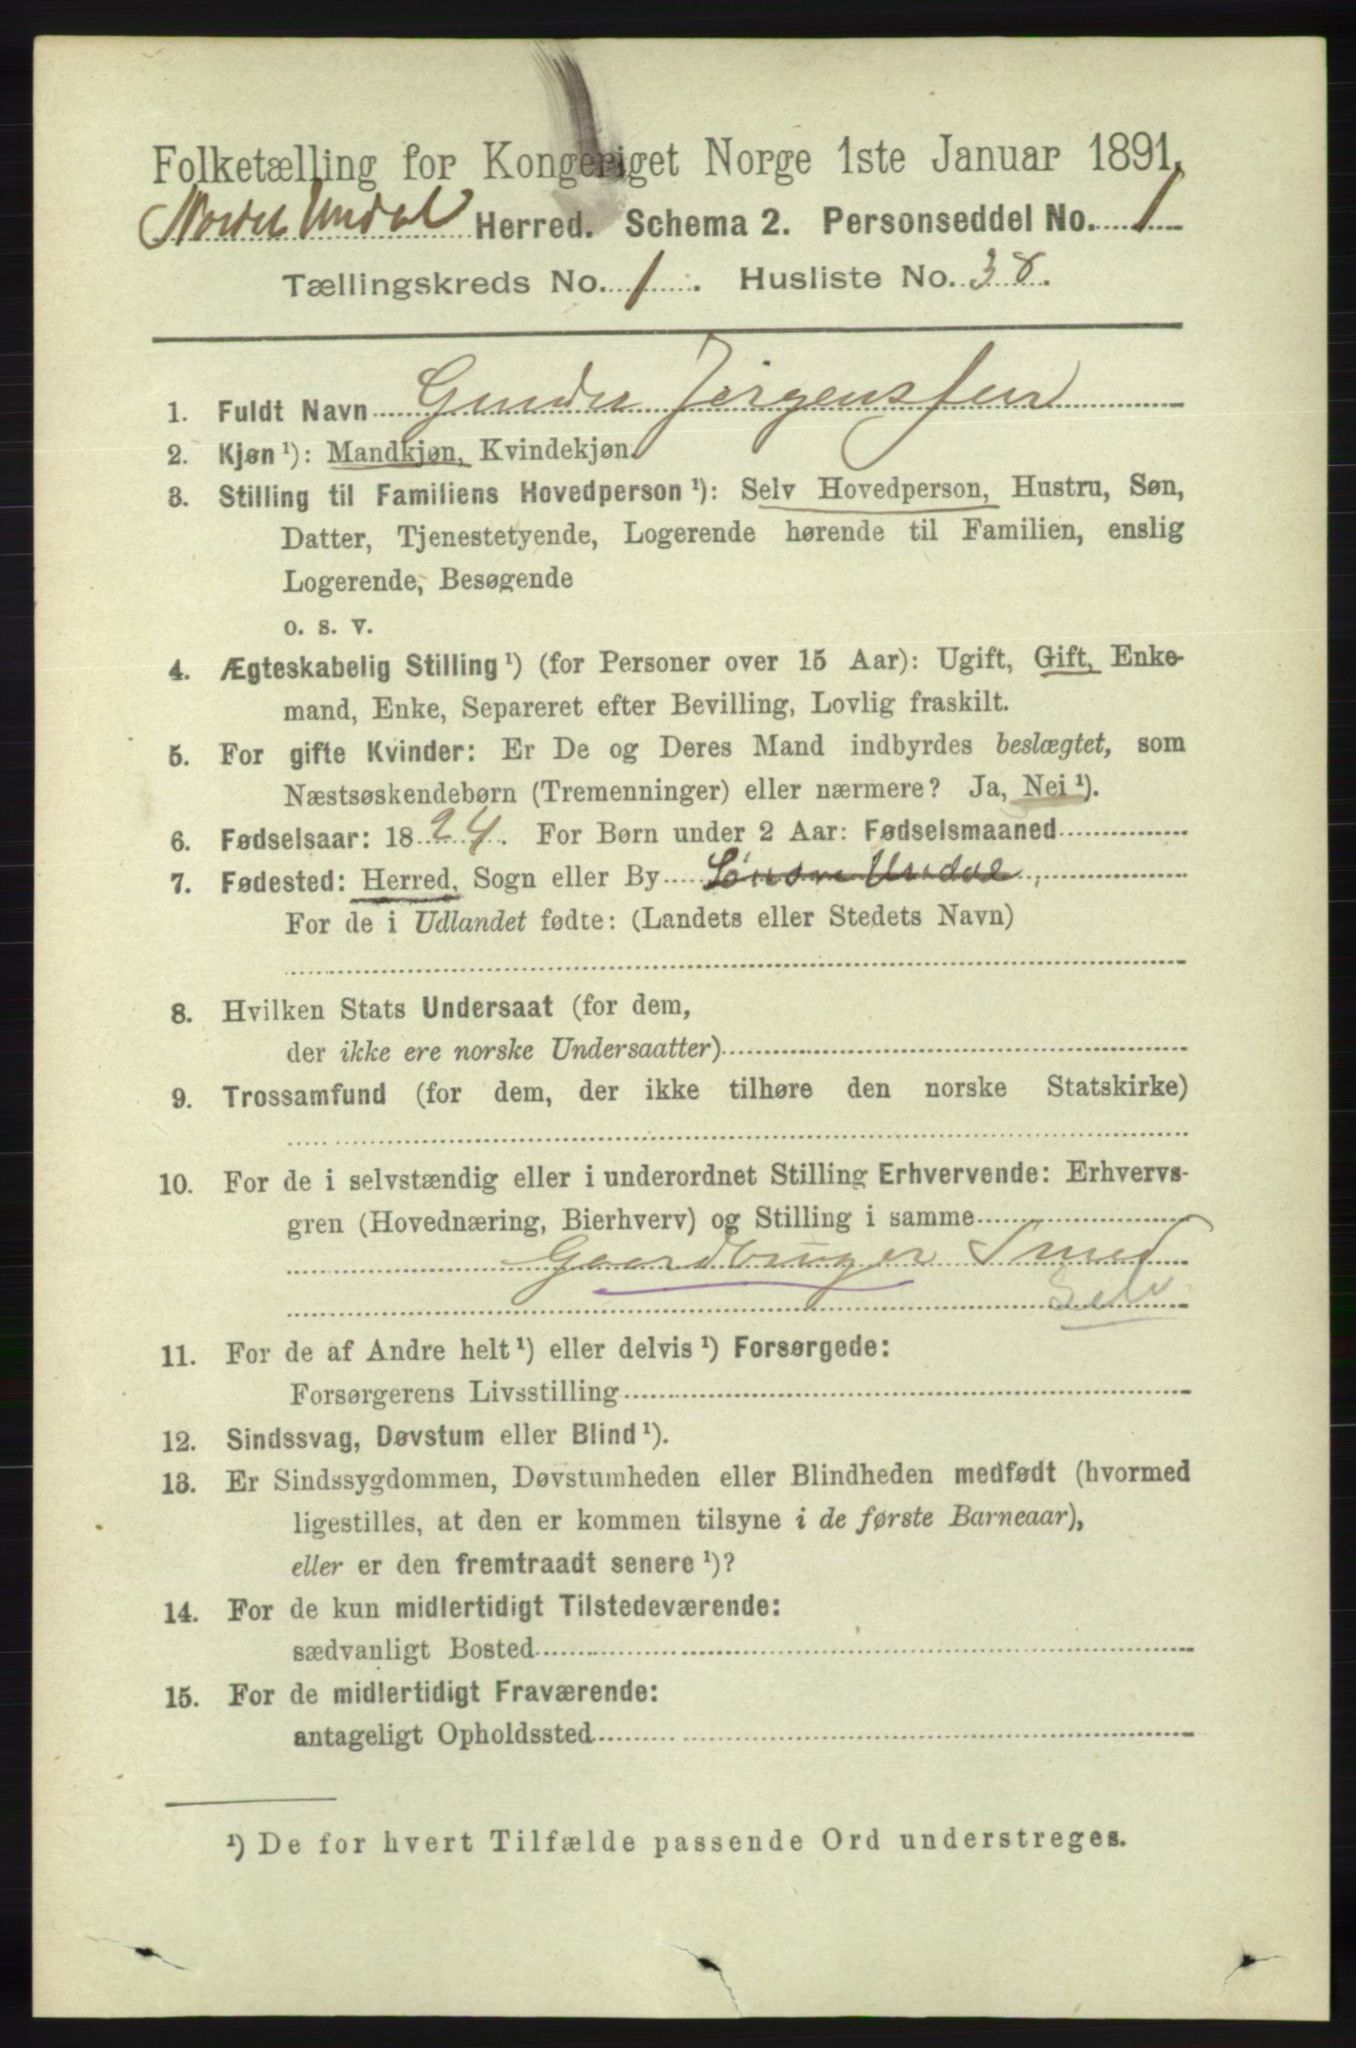 Folketælling for Kongeriget Norge 1ste Januar 1891.
Nordre Undal Herred. Schema 2. Personseddel No. 1
Tællingskreds No. 1. Husliste No. 38.
1. Fuldt Navn Gunder Jørgensen
2. Kjøn ¹): Mandkjøn, Kvindekjøn.
3. Stilling til Familiens Hovedperson ¹): Selv Hovedperson, Hustru, Søn,
Datter, Tjenestetyende, Logerende hørende til Familien, enslig
Logerende, Besøgende
o. s. v.
4. Ægteskabelig Stilling ¹) (for Personer over 15 Aar): Ugift, Gift, Enke-
mand, Enke, Separeret efter Bevilling, Lovlig fraskilt.
5. For gifte Kvinder: Er De og Deres Mand indbyrdes beslægtet, som
Næstsøskendebørn (Tremenninger) eller nærmere? Ja, Nei ¹).
6. Fødselsaar: 1824. For Børn under 2 Aar: Fødselsmaaned
7. Fødested: Herred, Sogn eller By Søndre Undal
For de i Udlandet fødte: (Landets eller Stedets Navn)
8. Hvilken Stats Undersaat (for dem,
der ikke ere norske Undersaatter)
9. Trossamfund (for dem, der ikke tilhøre den norske Statskirke)
10. For de i selvstændig eller i underordnet Stilling Erhvervende: Erhvervs-
gren (Hovednæring, Bierhverv) og Stilling i samme
Gaardbruger Smed
Selv
11. For de af Andre helt ¹) eller delvis ¹) Forsørgede:
Forsørgerens Livsstilling
12. Sindssvag, Døvstum eller Blind ¹).
13. Er Sindssygdommen, Døvstumheden eller Blindheden medfødt (hvormed
ligestilles, at den er kommen tilsyne i de første Barneaar),
eller er den fremtraadt senere ¹)?
14. For de kun midlertidigt Tilstedeværende:
sædvanligt Bosted
15. For de midlertidigt Fraværende:
antageligt Opholdssted
¹) De for hvert Tilfælde passende Ord understreges.